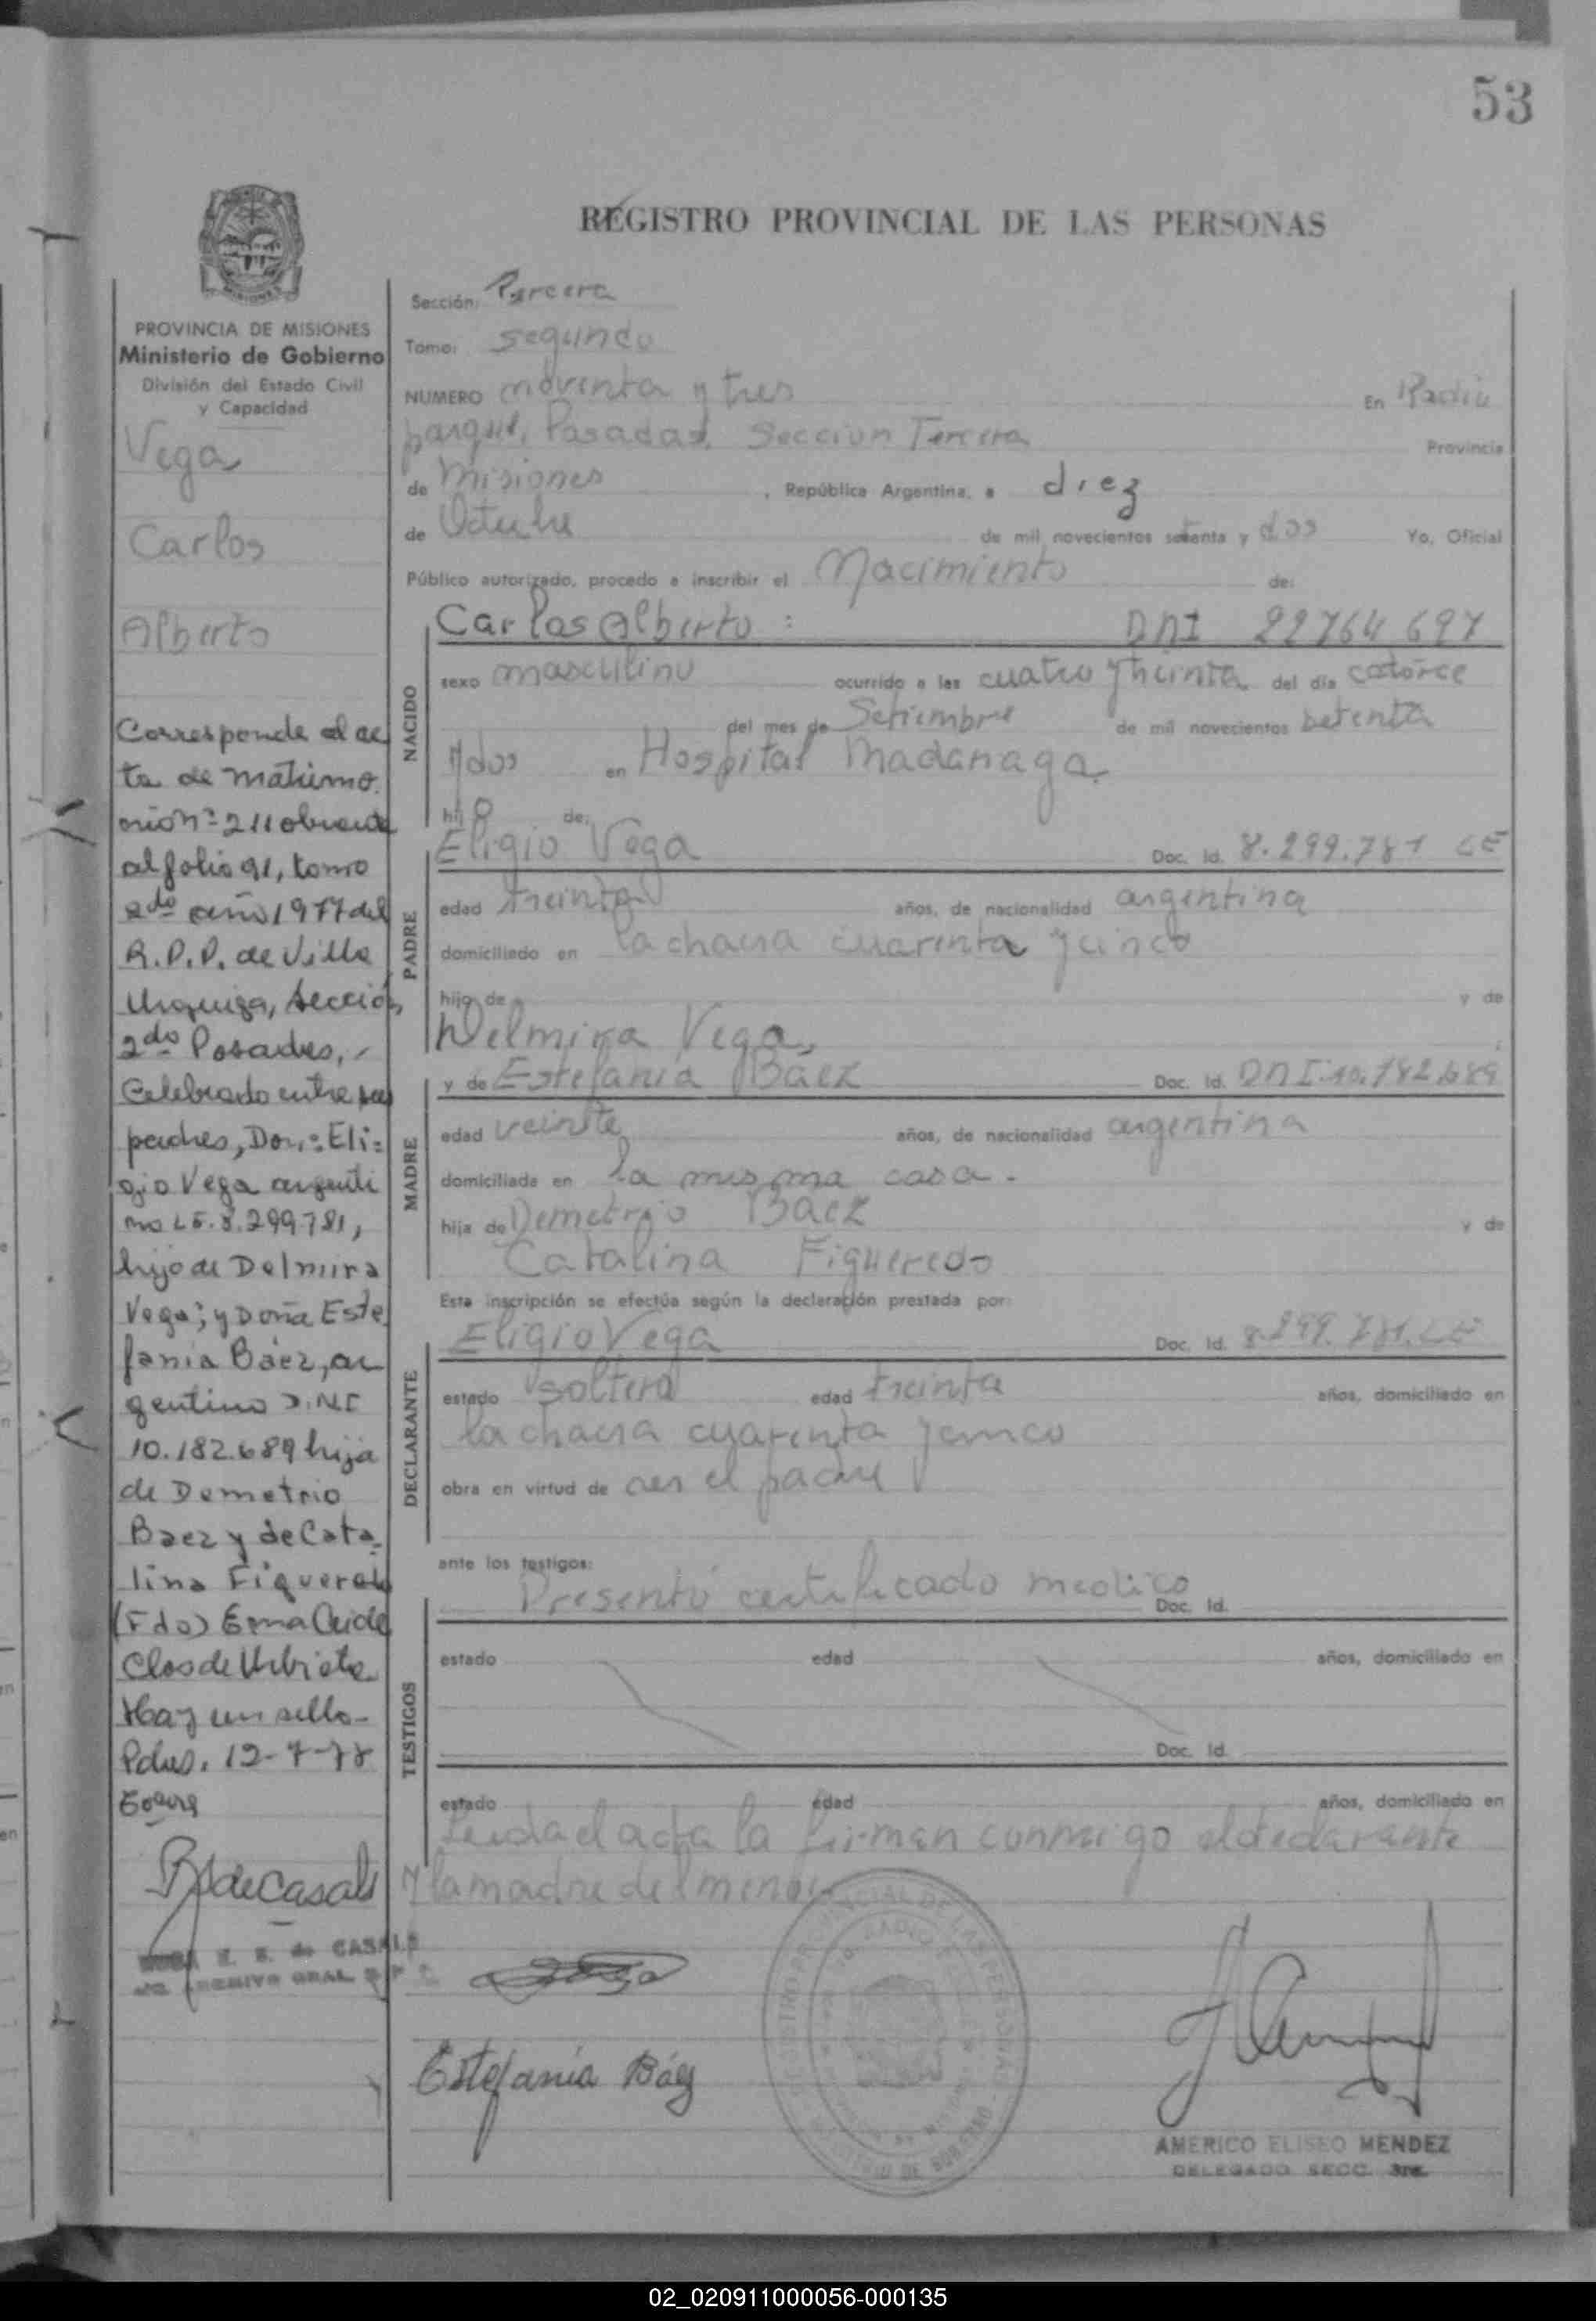 53
REGISTRO PROVINCIAL DE LAS PERSONAS
PROVINCIA DE MISIONES
Ministerio de Gobierno
División del Estado Civil
y Capacidad
Vega
Carlos
Alberto
Corresponde al ac
ta de matrimo
nio Nº 211 obrante
al folio 91, tomo
2do año 1977 del
R.P.P. de Villa
Urquiza, sección
2do Posadas,
Celebrado entre sus
padres, Don: Eli=
gio Vega argenti
no L.E. 8.299.781,
hijo de Delmira
Vega; y Doña Este
fania Báez, ar
gentino D.N.I
10.182.689 hija
de Demetrio
Baez y de Cata
lina Figueredo
(Fdo)
Hay un sello-
Pdas. 12-7-78
de Casals
E. de CASALS
ARCHIVO GRAL.
Sección: Tercera
Tomo: segundo
NUMERO noventa y tres En Radio
parque, Posadas, Seccion Tercera Provincia
de Misiones, República Argentina, a diez
de Octubre de mil novecientos setenta y dos Yo, Oficial
Público autorizado, procedo a inscribir el Nacimiento de:
NACIDO
Carlos Alberto: DNI 22764697
sexo masculino ocurrido a las cuatro y treinta del día catorce
del mes de Setiembre de mil novecientos setenta
y dos en Hospital Madariaga
hijo de:
PADRE
Eligio Vega Doc. Id. 8.299.781 LE
edad treinta años, de nacionalidad argentina
domiciliado en la chacra cuarenta y cinco
hijo de y de
Delmira Vega,
MADRE
y de Estefania Baez Doc. Id. DNI.10.182.689
edad veinte años, de nacionalidad argentina
domiciliada en la misma casa.
hija de Demetrio Baez y de
Catalina Figueredo
Esta inscripción se efectúa según la declaración prestada por:
DECLARANTE
Eligio Vega Doc. Id. 8.299.781.LE
estado soltero edad treinta años, domiciliado en
la chacra cuarenta y cinco
obra en virtud de ser el padre
ante los testigos:
TESTIGOS
Presentó certificado medico Doc. Id.
estado edad años, domiciliado en
Doc. Id.
estado edad años, domiciliado en
Leida el acta la firman conmigo el declarante
y la madre del menor
Estefania Báez
AMERICO ELISEO MENDEZ
DELEGADO SECC. 3ra.
02_020911000056-000135